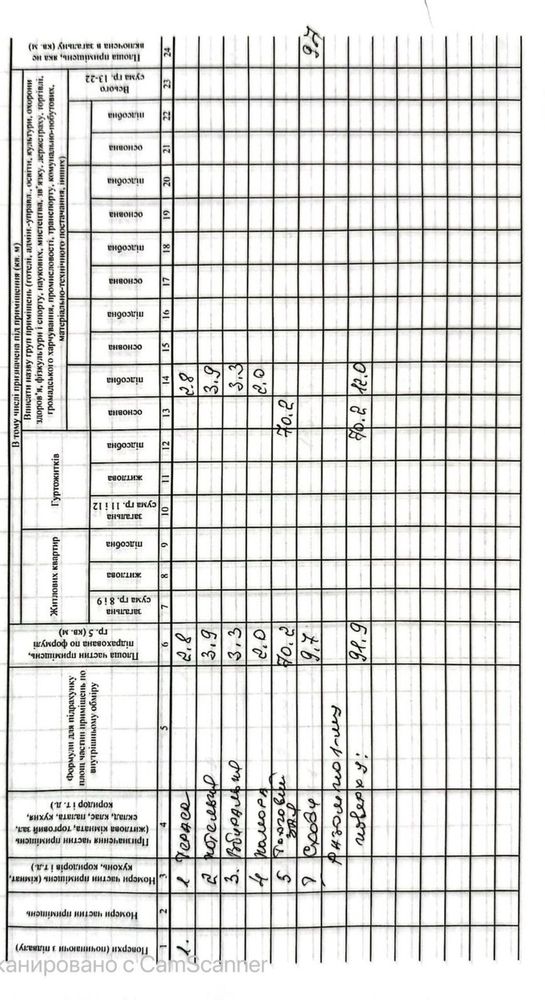 Поверхи (починаючи з підвалу)
Номери частин приміщень
Номери частин приміщень (кімнат, кухонь, коридорів і т.д.)
Призначення частин приміщень (житлова кімната, торговий зал, склад, клас, палата, кухня, коридор і т. д.)
Формули для підрахунку площ частин приміщень по внутрішньому обміру
Площа частин приміщень, підрахована по формулі гр. 5 (кв. м)
В тому числі призначена під приміщення (кв. м)
Житлових квартир
загальна сума гр. 8 і 9
житлова
підсобна
Гуртожитків
загальна сума гр. 11 і 12
житлова
підсобна
Вписати назву груп приміщень (готелі, адмін.-управл., освіти, культури, охорони
здоров'я, фізкультури і спорту, наукових, мистецтва, зв'язку, держстраху, торгівлі,
громадського харчування, промисловості, транспорту, комунально-побутових,
матеріально-технічного постачання, інших)
основна
підсобна
основна
підсобна
основна
підсобна
основна
підсобна
основна
підсобна
Всього сума гр. 13-22
Площа приміщень, яка не включена в загальну (кв. м)
1 2 3 4 5 6 7 8 9 10 11 12 13 14 15 16 17 18 19 20 21 22 23 24
1. 1 Тераса 2.8 2.8
2 Котельня 3.9 3.9
3. Вбиральня 3.3 3.3
4 Комора 2.0 2.0
5 Торговий зал 70.2 70.2
9.7 9.7
Разом по 1-му
поверху: 91.9 70.2 12.0
сканировано с CamScanner